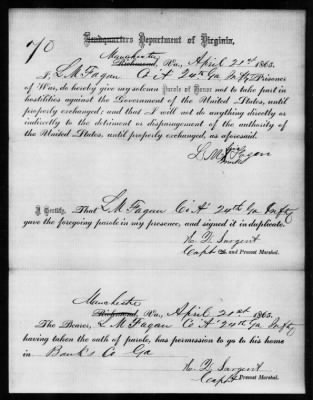 70
Headquarters Department of Virginia,
Manchester
Richmond, Va., April 21st 1865.
I, L M Fagan Co A 24th Ga Infty, Prisoner
of War, do hereby give my solemn Parole of Honor not to take part in
hostilities against the Government of the United States, until
properly exchanged; and that I will not do anything directly or
indirectly to the detriment or disparagement of the authority of
the United States, until properly exchanged, as aforesaid.
L M Fagan
I Certify, That L M Fagan Co A 24th Ga Infty
gave the foregoing parole in my presence, and signed it in duplicate.
N. D. Sargent
Capt and Provost Marshal.
Manchester
Richmond, Va., April 21st 1865.
The Bearer, L M Fagan Co A 24th Ga Infty
having taken the oath of parole, has permission to go to his home
in Bank's Co Ga
N. D. Sargent
Capt Provost Marshal.